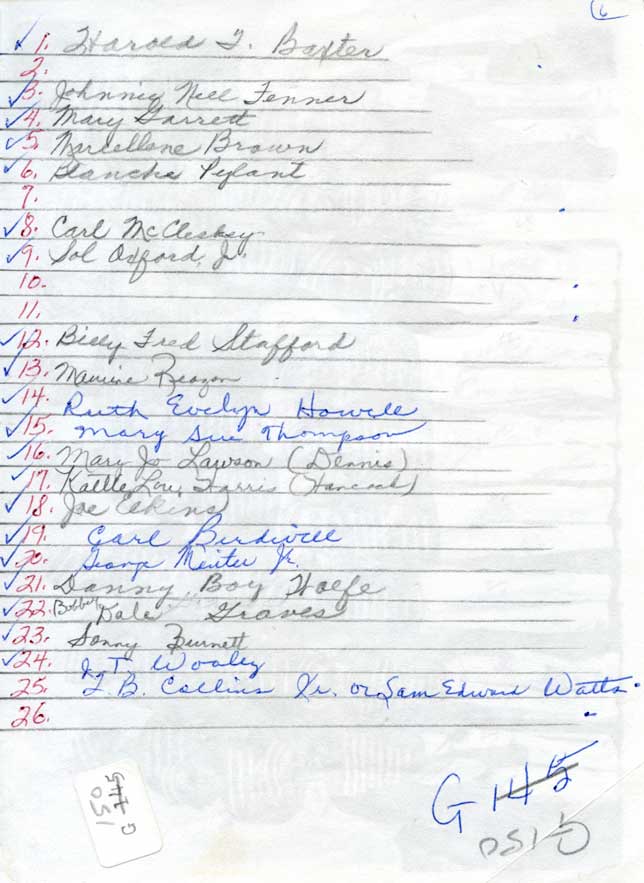 6
✓ 1. Harold T. Baxter
2.
✓ 3. Johnnie Nell Fenner
✓ 4. Mary Garrett
✓ 5. Marcellene Brown
✓ 6. Blanche Pylant
7.
✓ 8. Carl McCleskey
✓ 9. Sol Oxford, Jr.
10.
11.
✓ 12. Billy Fred Stafford
✓ 13. Maurine Reagon
✓ 14. Ruth Evelyn Howell
✓ 15. Mary Sue Thompson
✓ 16. Mary Jo Lawson (Dennis)
✓ 17. Katie Lou Farris (Hancock)
✓ 18. Joe Elkins
✓ 19. Carl Birdwell
✓ 20. George Minter Jr.
✓ 21. Danny Boy Wolfe
✓ 22. Bobby Dale Graves
✓ 23. Sonny Burnett
✓ 24. J. T. Wooley
25. T. B. Collins Jr. or Sam Edward Watts.
26.
G 145
G 150
G
145
150